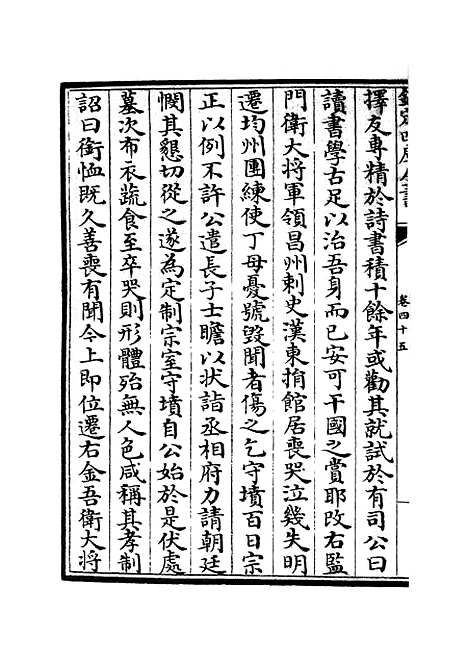 欽定四庫全書
卷四十五
擇友專精於詩書積十餘年或勸其就試於有司公曰
讀書學古足以治吾身而已安可干國之賞耶改右監
門衛大將軍領昌州刺史漢東捐館居喪哭泣幾失明
遷均州團練使丁母憂號毀聞者傷之乞守墳百日宗
正以例不許公遣長子士瞻以狀詣丞相府力請朝廷
憫其懇切從之遂為定制宗室守墳自公始於是伏處
墓次布衣蔬食至卒哭則形體殆無人色咸稱其孝制
詔曰銜恤既久善喪有聞今上即位遷右金吾衛大將